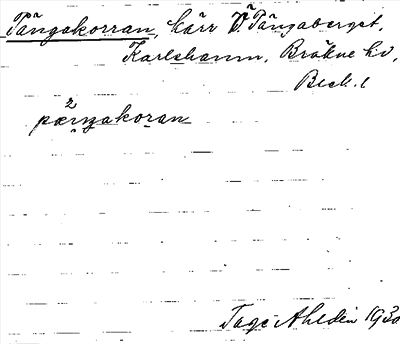 Pängakorran, kärr V Pängaberget,
Karlshamn, Bräkne hd,
Blek. l
pæŋakoran
Tage Ahldén 1930